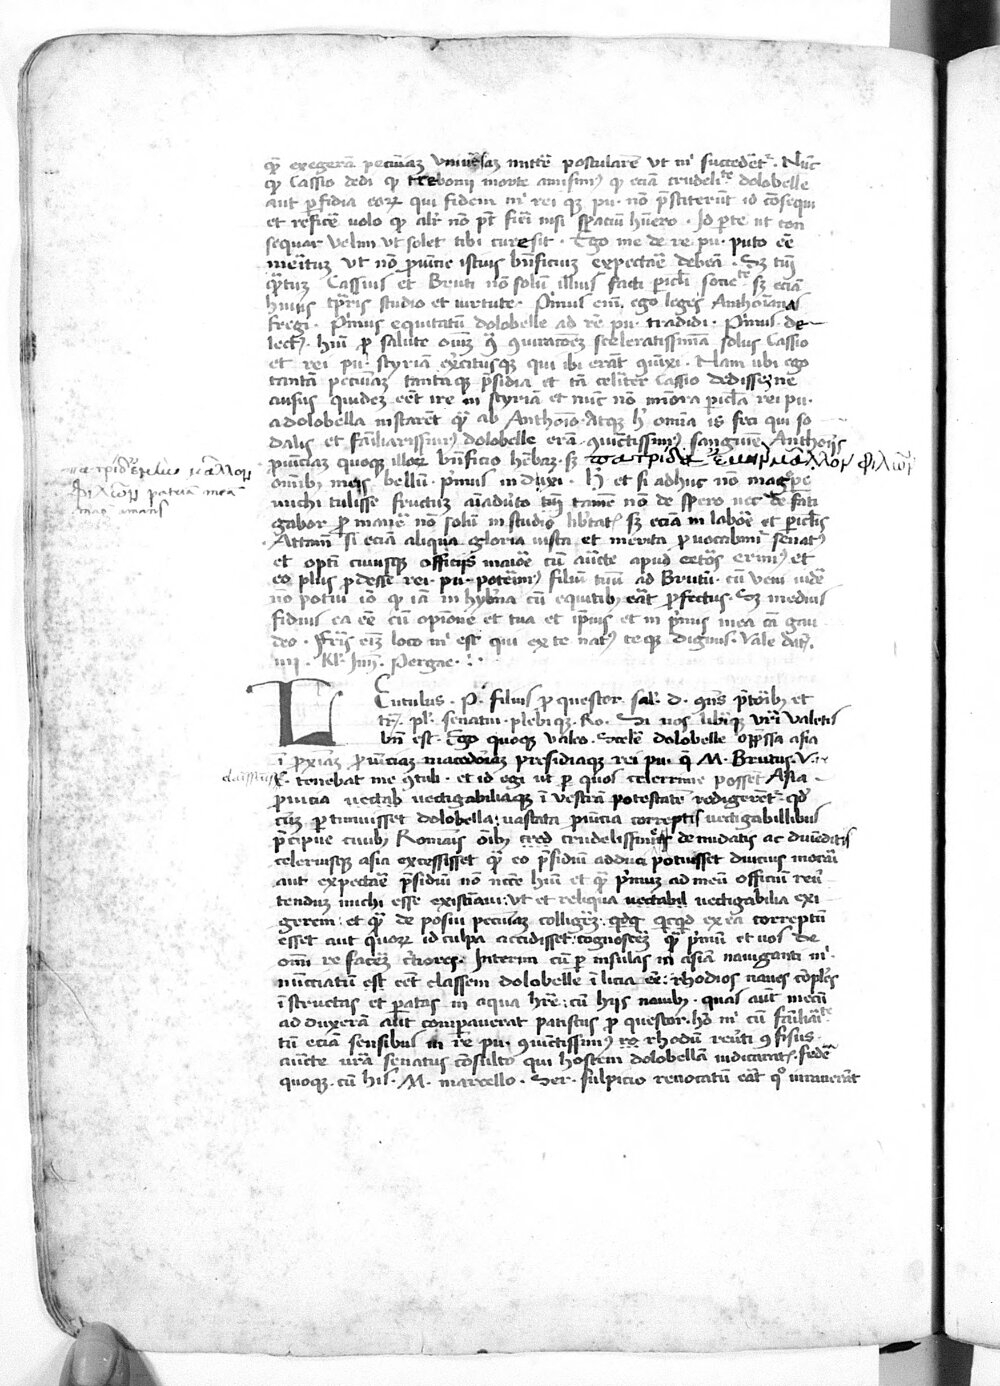 qꝫ exegerā pecuniaꝫ universaꝫ mittē̄ postularē ut mͥ succedet̄. Nūc
qꝫ Cassio dedi qꝫ trebonii morte amisimꝰ qꝫ eciā crudelite dolobelle
aut ꝑfidia eoꝝ qui fidem mͥ rei qꝫ pu. nō p̄stiterūt id cōsequi
et reficē volo qꝫ alr̄ nō pōt fieri nisi spaciuꝫ hūero. Id ꝑ te ut con
sequar velim ut solet tibi cure sit. Ego me de re pu. puto eē̄
meritum ut nō ꝓvincie istius bn̄ficiuꝫ expectar̄e debeā. Sꝫ tm̄
quātuꝫ Cassius et Bruti nō solū illius facti ꝑicli socie te sꝫ eciā
huius tp̄ris studio et virtute. Primus eni͂ ego leges Anthoianas
fregi. Primus equitatū dolobelle ad rē pu. tradidi. Primus de
lect. hui͂ ꝓ salute om̄iꝫ ꝯtra ꝯiuracōeꝫ sceleratissimā solus Cassio
et rei pu. styriā exercitusqꝫ qui ibi erāt ꝯiu͂xi. Nam ubi ego
tantā pecuniaꝫ tantaqꝫ p̄sidia et tā celiter Cassio dedissem ne
ausus quideꝫ eēt ire in styriā et nūc nō miora ꝑicl̄a rei pu.
a dolobella instarēt quā ab Anthoīo. Atqꝫ h̄ omīa is feci qui so
dalis et familiarissimꝰ dolobelle erā. ꝯiunctissimꝰ sanguine Anthoīs
ꝓvinciaꝫ quoqꝫ illoꝝ bn̄ficio hēbaꝫ. sꝫ πατριδα εμην μαλλον φιλων
πατριδ εμην μαλλον
φιλων patriā meā
mag amans
omībꝰ meis bellū. primus induxi. H et si adhuc nō magnope
michi tulisse fructuꝫ aīaduto tm̄ tamē nō despero nec defati
gabor ꝓ manē nō solū in studio libtatꝭ sꝫ eciā in labōe et ꝑiclis
Attamē si eciā aliqua gloria iusta et merita ꝓvocabimͬ senatꝰ
et opti cuiusqꝫ officiis maiōe cū aucte apud cetōs erimꝰ et
eo plus ꝓdesse rei. pu. poterimꝰ filiū tuū ad Brutū. cū veni vidē
nō potui iō qꝫ iā in hybna cū equitibꝰ erāt ꝓfectus. Sꝫ medius
fidius ea eē̄ cū opinōe et tua et ipius et in p̄mus mea cā gau
deo. Fr̄is eīꝫ loco mͥ est qui ex te natꝰ teqꝫ dignus. Vale datꝭ
iiii. kl. Jun. Pergae.
LCutulus. P. filius ꝓ questor. sal. d. cōns pr̄toibꝰ et
tr. pl. senatui. plebiqꝫ. Ro. Si vos libiqꝫ vr̄i valetis
bn̄ est. Ego quoqꝫ valeo. Scele dolobelle oppssa asia
ī ꝓxiaꝫ ꝓvinciaꝫ macedoiaꝫ presidiaqꝫ rei pu. q̄ M. Brutus. V.
clarissimꝰ
C. tenebat me ꝯtuli. et id egi ut ꝑ quos celerrime posset Asia
ꝓvincia vectab vectigabiliaqꝫ ī vestrā potestatē rodigerent̄. qd
cuꝫ ꝑtimuisset dolobella: vastata ꝓvincia correptis vectigabilibus
p̄cipue civibꝰ Romāis omībꝰ crudelissime denudatis ac divenditis
celeriusqꝫ asia excessisset quā eo p̄sidiū adduci potuisset diucius morāi
aut expectare p̄sidiū nō necce hui͂ et quā p̄muꝫ ad meū officiū revͬ
tenduꝫ michi esse existimavi: ut et reliqua vectabil vectigabilia exi
gerem: et quā deposui pecuniaꝫ colligeꝫ. qdqꝫ qcqd ex ea correptū
esset aut quoꝝ id culpa accidisset: cognosceꝫ quā p̄mū et vos de
omi re faceꝫ ctiores. Interim cū ꝑ insulas in asiā naviganti mͥ
nūnciatū est cēt classem dolobelle ī licia eē̄: rhodios naves cōples
īstructas et ꝑatas in aqua hr̄e: cū hiis navibꝰ. quas aut mecū
adduxerā aut compaverat patiscus ꝓ questor. hō mͥ cū familiāte
tū eciā sensibus in rē pu. ꝯiunctissimꝰ rhodū reverti ꝯfisus
aucte vrā senatus cōsulto qui hostem dolobellā iudicaratꝭ. fede
quoqꝫ. cū his. M. marcello. Ser. sulpicio renocatū eāt qo iuraverāt